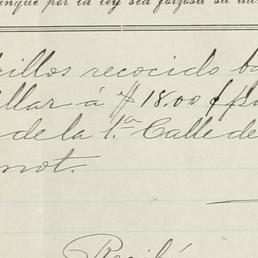 unque por la ley sea forzosa su
illos recocido ba
illar á $18.00
de la 1.ª Calle de
not.
Recibí